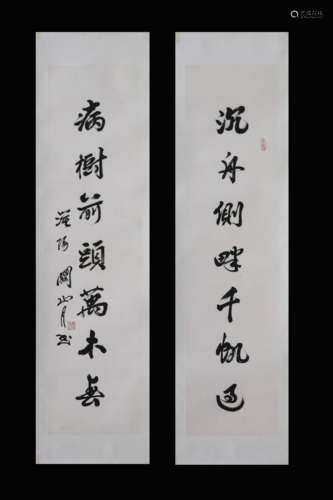 沉舟側畔千帆過
病樹前頭萬木春
漠陽關山月書